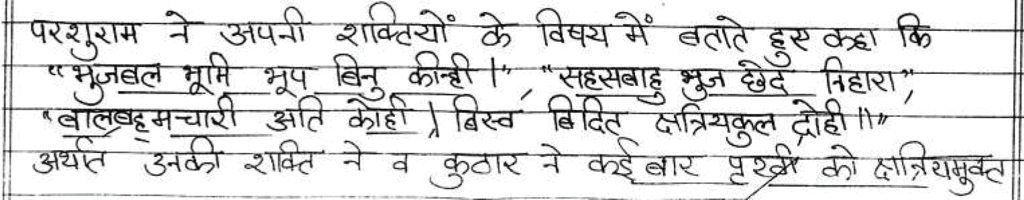 परशुराम ने अपनी शक्तियों के विषय में बताते हुए कहा कि
"भुजबल भूमि भूप बिनु कीन्ही।", "सहसबाहु भुज छेद निहारा",
"बालब्रह्मचारी अति कोही। बिस्व बिदित क्षत्रियकुल द्रोही॥"
अर्थात उनकी शक्ति ने व कुठार ने कई बार पृथ्वी को क्षत्रियमुक्त